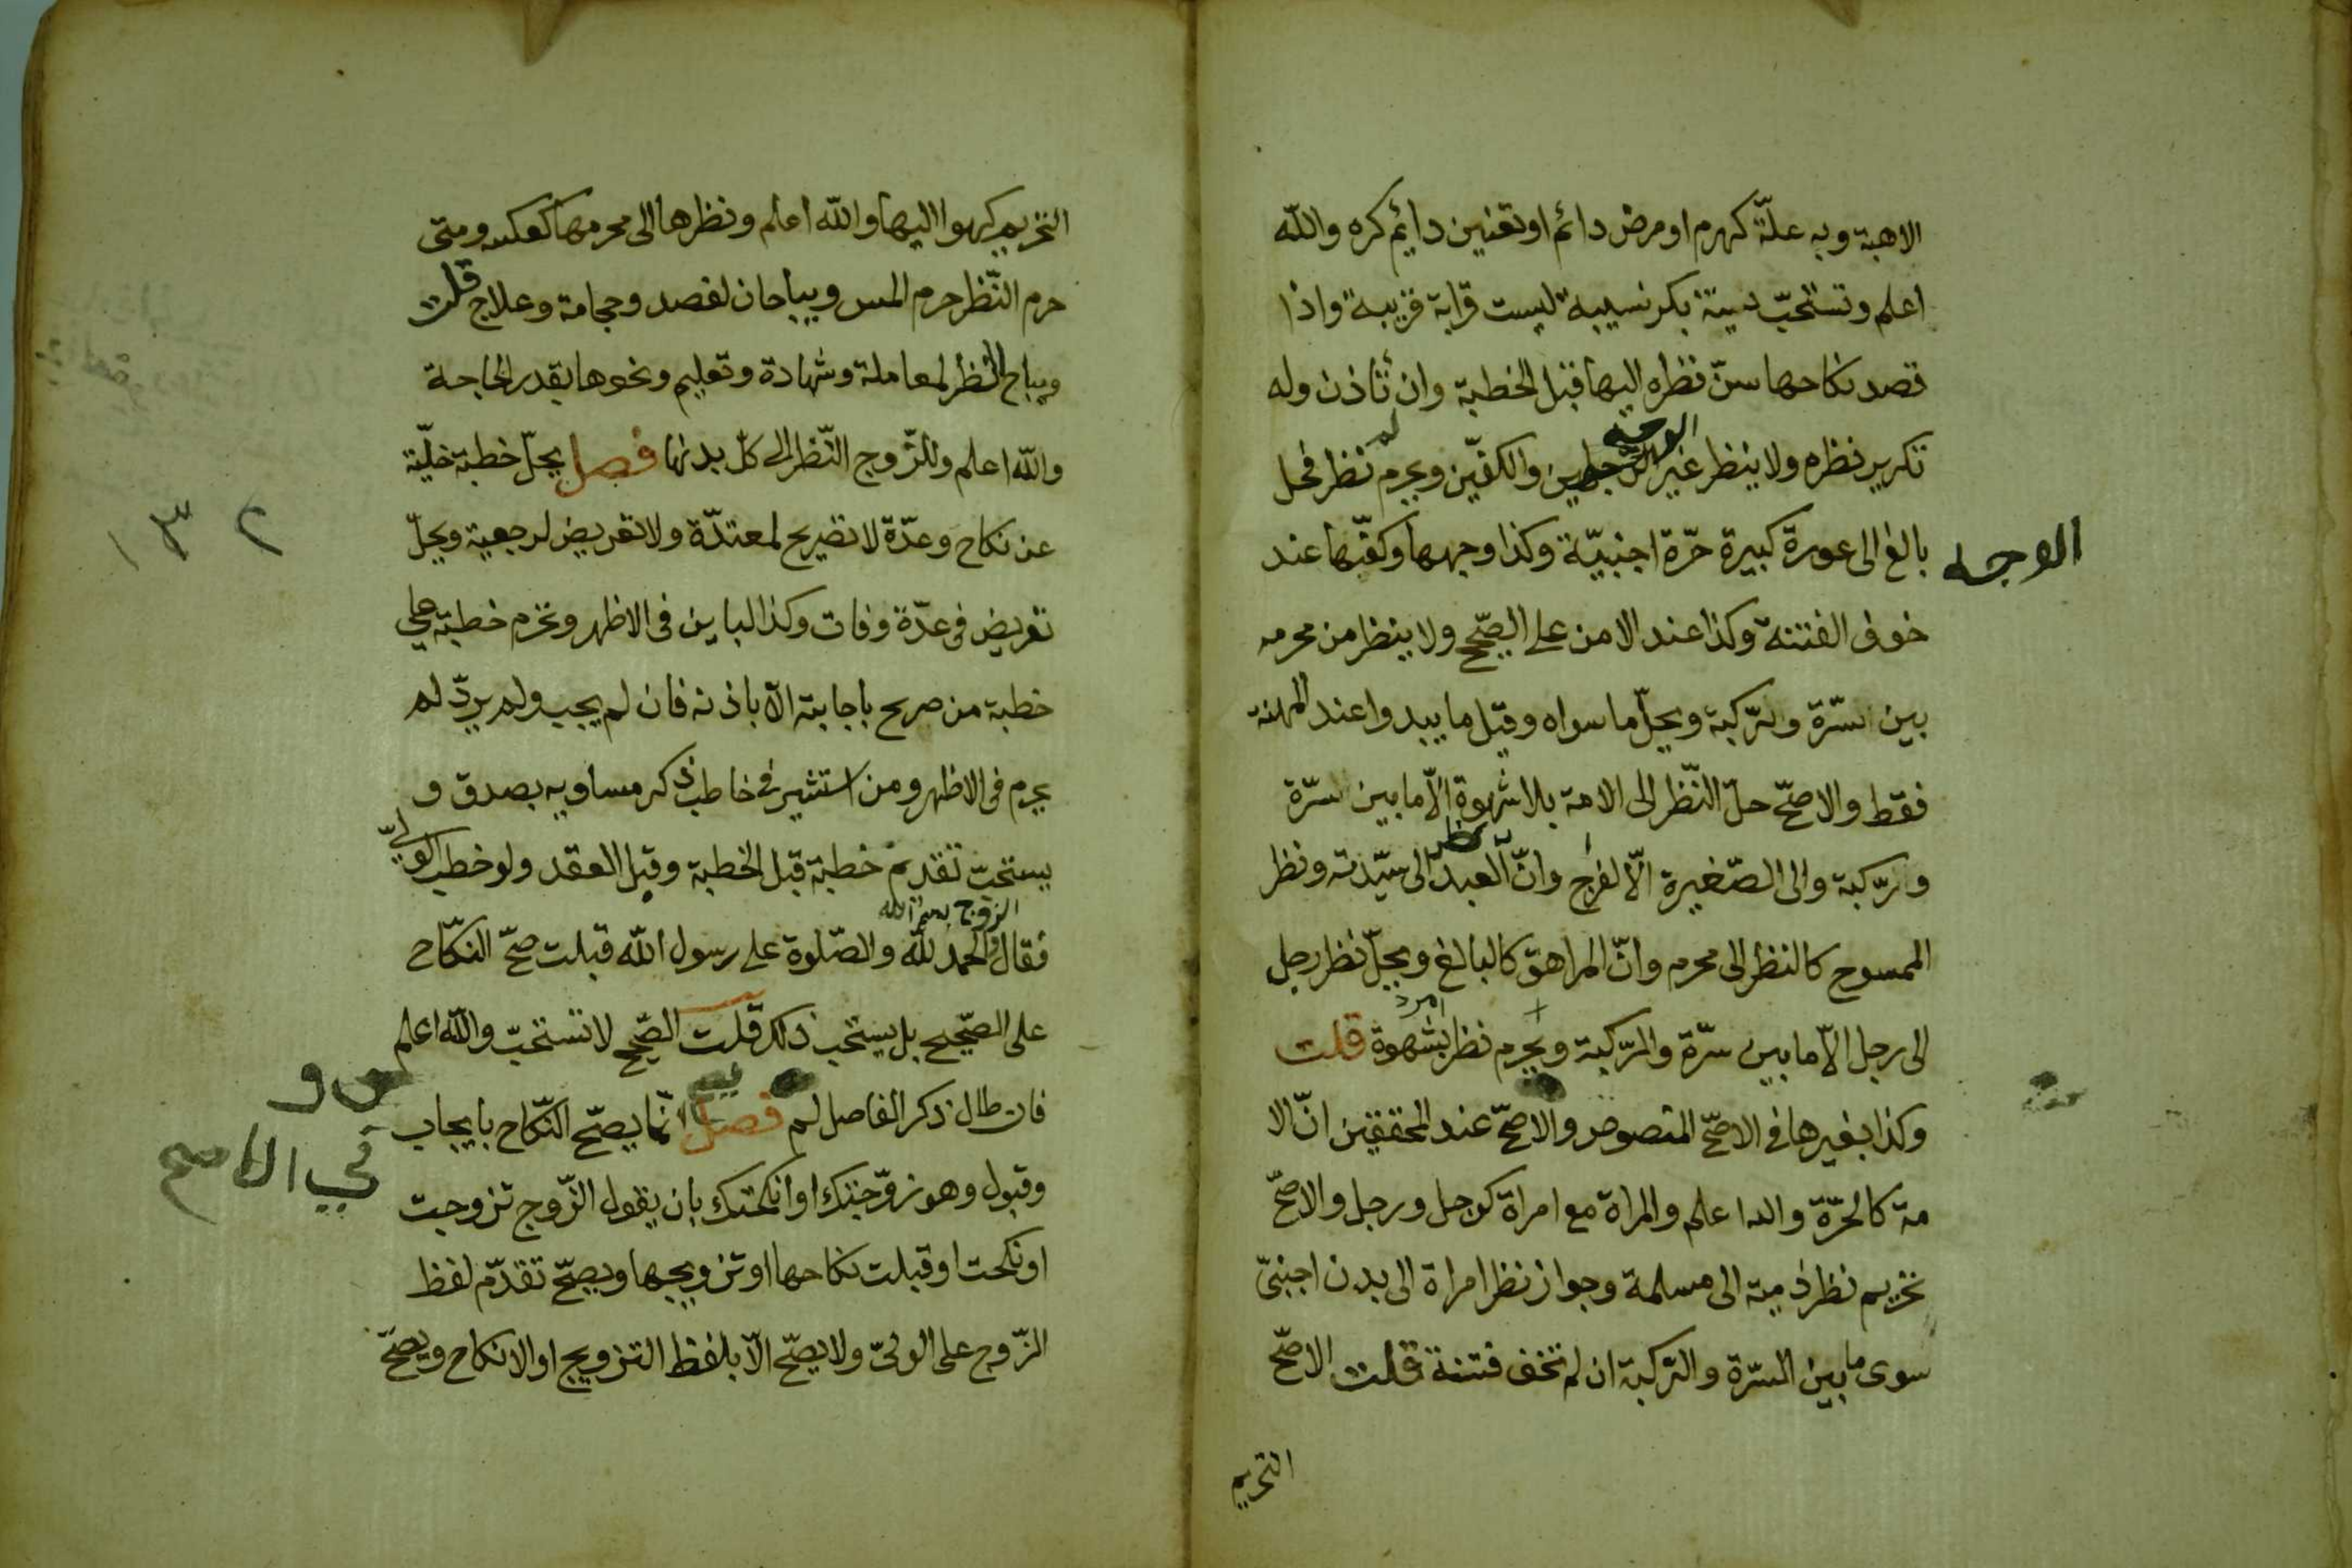 الاهبة وبه علّة كهرم او مرض دائم او تعنين دايم كره والله
اعلم وتستحبّ ديّنة بكر نسيبة ليست قرابة قريبة واذا
قصد نكاحها سنّ نظره اليها قبل الخطبة وان لم تأذن وله
تكرير نظره ولا ينظر غير الوجه والكفّين ويحرم نظر فحل
بالغ الى عورة كبيرة حرّة اجنبيّة وكذا وجهها وكفّيها عند
الوجه
خوف الفتنة وكذا عند الامن على الصّحيح ولا ينظر من محرمه
بين السّرّة والرّكبة ويحلّ ما سواه وقيل ما يبدوا عند المهنة
فقط والاصحّ حلّ النّظر الى الامة بلا شهوة الّا ما بين السرّة
والرّكبة والى الصّغيرة الّا لفرج وانّ نظر العبد الى سيّدته ونظر
الممسوح كالنظر الى محرم وانّ المراهق كالبالغ ويحلّ نظر رجل
الى رجل الّا ما بين سرّة والرّكبة ويحرم نظر امرد بشهوة قلت
وكذا بغيرها في الاصحّ المنصوص والاصحّ عند المحققين انّ الا
مة كالحرّة والله اعلم والمراة مع امراة كرجل ورجل والاصحّ
تحريم نظر ذمية الى مسلمة وجواز نظر امراة الى بدن اجنبىّ
سوى ما بين السّرّة والرّكبة ان لم تخف فتنة قلت الاصحّ
التحريم
التحريم كهوا اليها والله اعلم ونظرها الى محرمها كعكسه ومتى
حرم النّظر حرم المس ويباحان لفصد وحجامة وعلاج قلت
ويباح النّظر لمعاملة وشهادة وتعليم ونحوها بقدر الحاجة
والله اعلم وللزّوج النّظر الى كلّ بدنها فصل يحلّ خطبة خليّة
عن نكاح وعدّة لا تصريح لمعتدّة ولا تعريض لرجعية ويحلّ
١٣٢
تعريض فى عدّة وفات وكذا الباين فى الاظهر وتحرم خطبة على
خطبة من صرح باجابته الّا باذنه فان لم يجب ولم يردّ لم
يحرم فى الاظهر ومن استشير في خاطب ذكر مساويه بصدق و
يستحبّ تقديم خطبة قبل الخطبة وقبل العقد ولو خطب الولىّ
فقال الزوج بسم الله والحمد لله والصّلوة على رسول الله قبلت صحّ النكّاح
على الصّحيح بل يستحب ذلك قلت الصّحيح لا تستحبّ والله اعلم
فان طال ذكر الفاصل لم يصح فصل انّما يصحّ النّكاح بايجاب
في الاصح
وقبول وهو زوّجتك او انكحتك بان يقول الزّوج تزوجت
او نكحت او قبلت نكاحها او تزويجها ويصحّ تقدّم لفظ
الزّوج على الولىّ ولا يصحّ الّا بلفظ التزويج او الانكاح ويصحّ